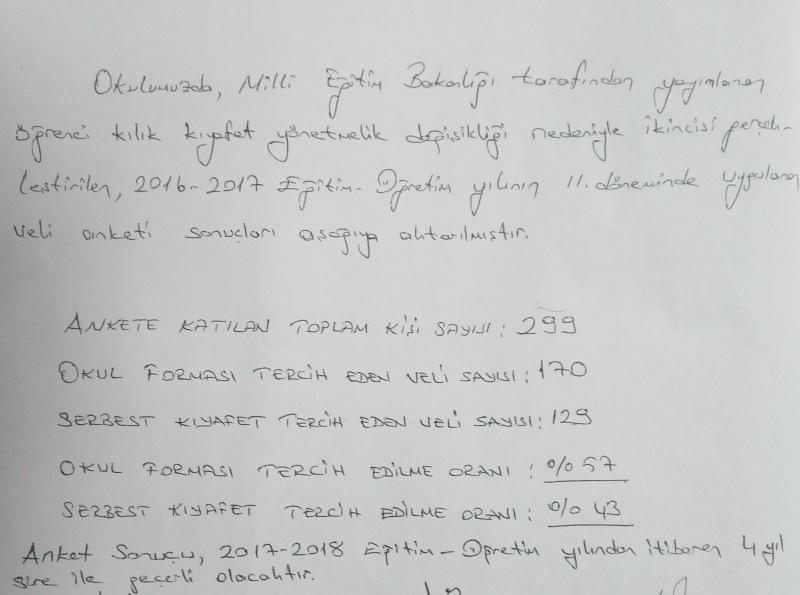 Okulumuzda, Milli Eğitim Bakanlığı tarafından yayımlanan
öğrenci kılık kıyafet yönetmelik değişikliği nedeniyle ikincisi gerçek-
leştirilen, 2016-2017 Eğitim-Öğretim yılının 11. döneminde uygulanan
veli anketi sonuçları aşağıya aktarılmıştır.
ANKETE KATILAN TOPLAM KİŞİ SAYISI: 299
OKUL FORMASI TERCİH EDEN VELİ SAYISI: 170
SERBEST KIYAFET TERCİH EDEN VELİ SAYISI: 129
OKUL FORMASI TERCİH EDİLME ORANI: %57
SERBEST KIYAFET TERCİH EDİLME ORANI: %43
Anket Sonucu, 2017-2018 Eğitim-Öğretim yılından itibaren 4 yıl
süre ile geçerli olacaktır.